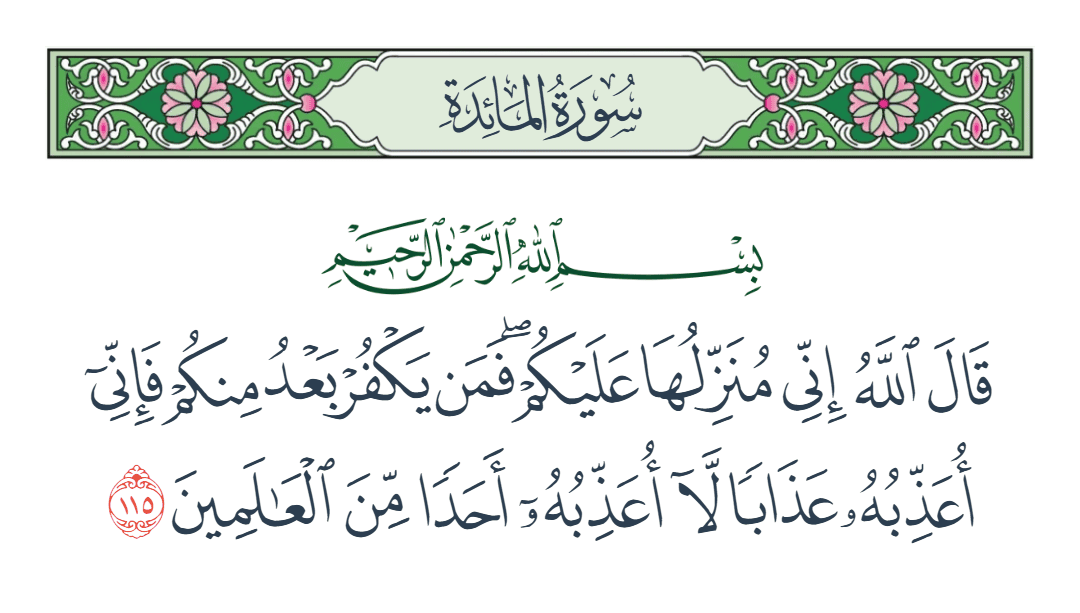 سُورَةُ المَائِدَةِ
بِسْمِ ٱللَّهِ ٱلرَّحْمَٰنِ ٱلرَّحِيمِ
قَالَ ٱللَّهُ إِنِّي مُنَزِّلُهَا عَلَيْكُمْۖ فَمَن يَكْفُرْ بَعْدُ مِنكُمْ فَإِنِّيٓ
أُعَذِّبُهُۥ عَذَابًا لَّآ أُعَذِّبُهُۥٓ أَحَدًا مِّنَ ٱلْعَٰلَمِينَ ١١٥